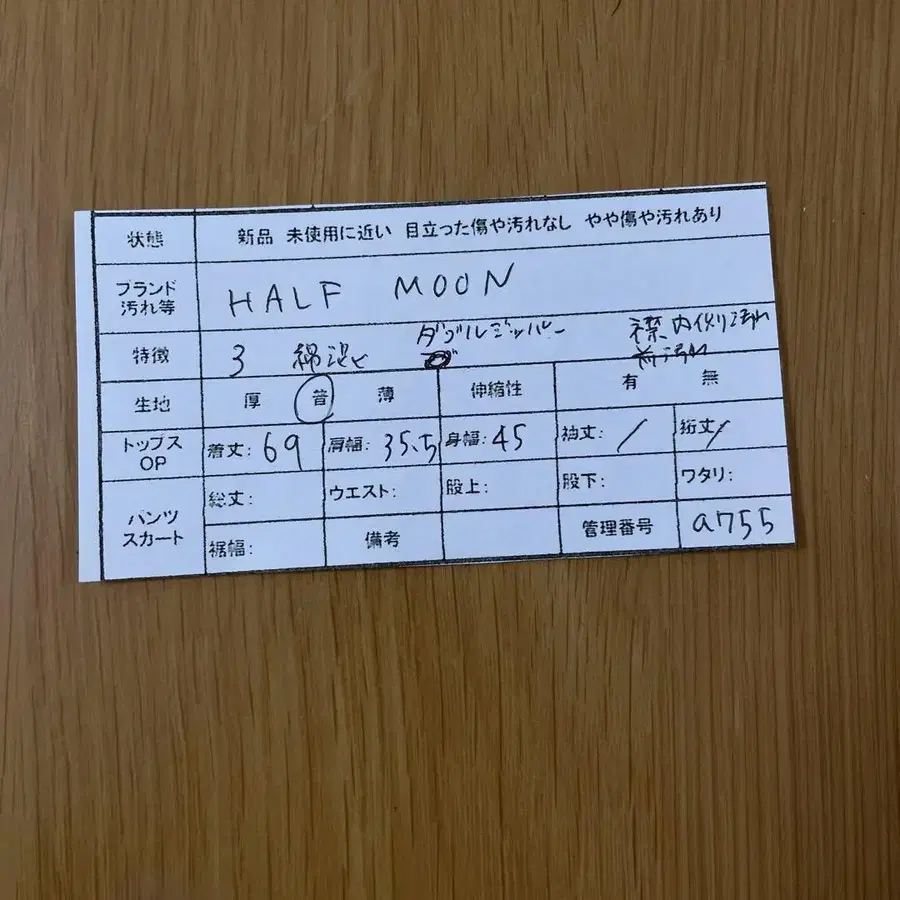 状態 新品 未使用に近い 目立った傷や汚れなし やや傷や汚れあり
ブランド 汚れ等 HALF MOON
特徴 3 綿混 ダブルジッパー 襟内側汚れ
前汚れ
生地 厚 普 薄 伸縮性 有 無
トップス OP 着丈: 69 肩幅: 35.5 身幅: 45 袖丈: / 裄丈: /
パンツ スカート 総丈: ウエスト: 股上: 股下: ワタリ:
裾幅: 備考 管理番号 a755